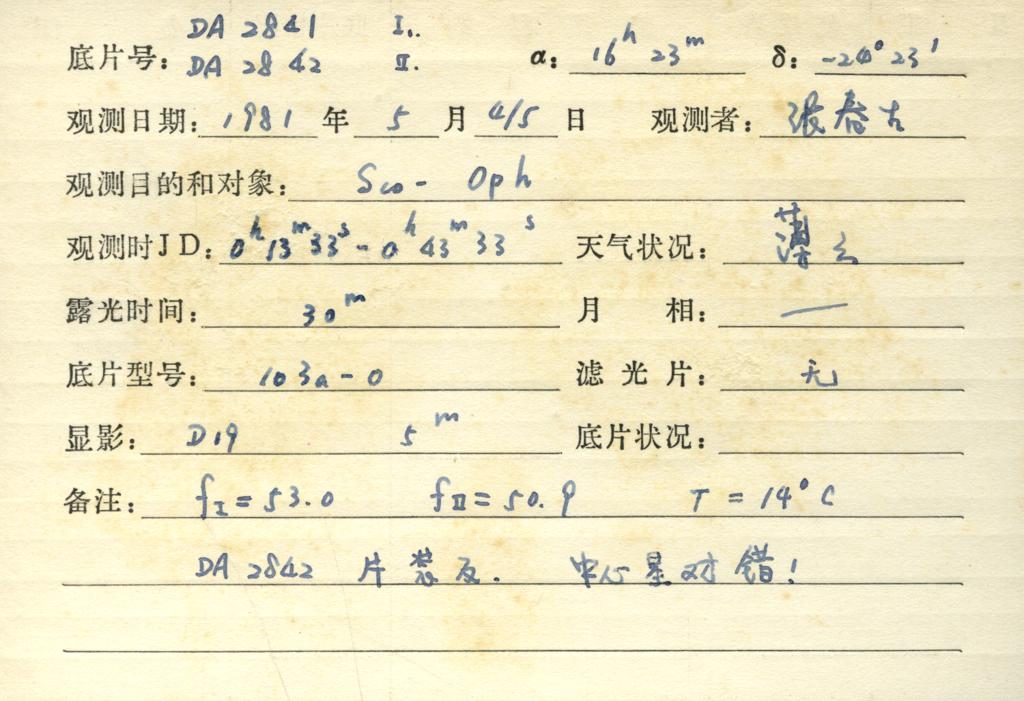 DA 2841 I.
底片号: DA 2842 II. α: 16ʰ 23ᵐ δ: -24° 23'
观测日期: 1981 年 5 月 4/5 日 观测者: 张春吉
观测目的和对象: Sco - Oph
观测时JD: 0ʰ13ᵐ33ˢ - 0ʰ43ᵐ33ˢ 天气状况: 薄云
露光时间: 30ᵐ 月 相: —
底片型号: 103a-O 滤光片: 无
显影: D19 5ᵐ 底片状况:
备注: fI = 53.0 fII = 50.9 T = 14°C
DA 2842 片装反. 中心星对错!